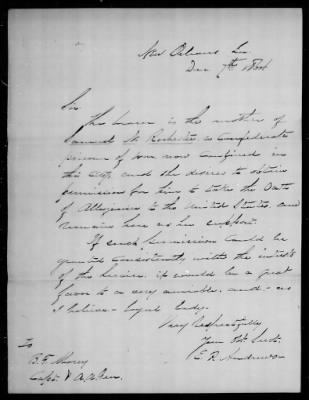 New Orleans La
Dec 7th 1864
Sir
The bearer is the mother of
Samuel W. Rochester, a Confederate
prisoner of war now confined in
this City, and she desires to obtain
permission for him to take the Oath
of Allegiance to the United States, and
remain here as her support.
If such permission could be
granted consistently with the interests
of the Service, it would be a great
favor to a very amiable, and - as
I believe - loyal lady.
Very Respectfully
Your Obt. Servt.
E. R. Andrews
To
B. F. Morey
Capt. & A. A. Gen.